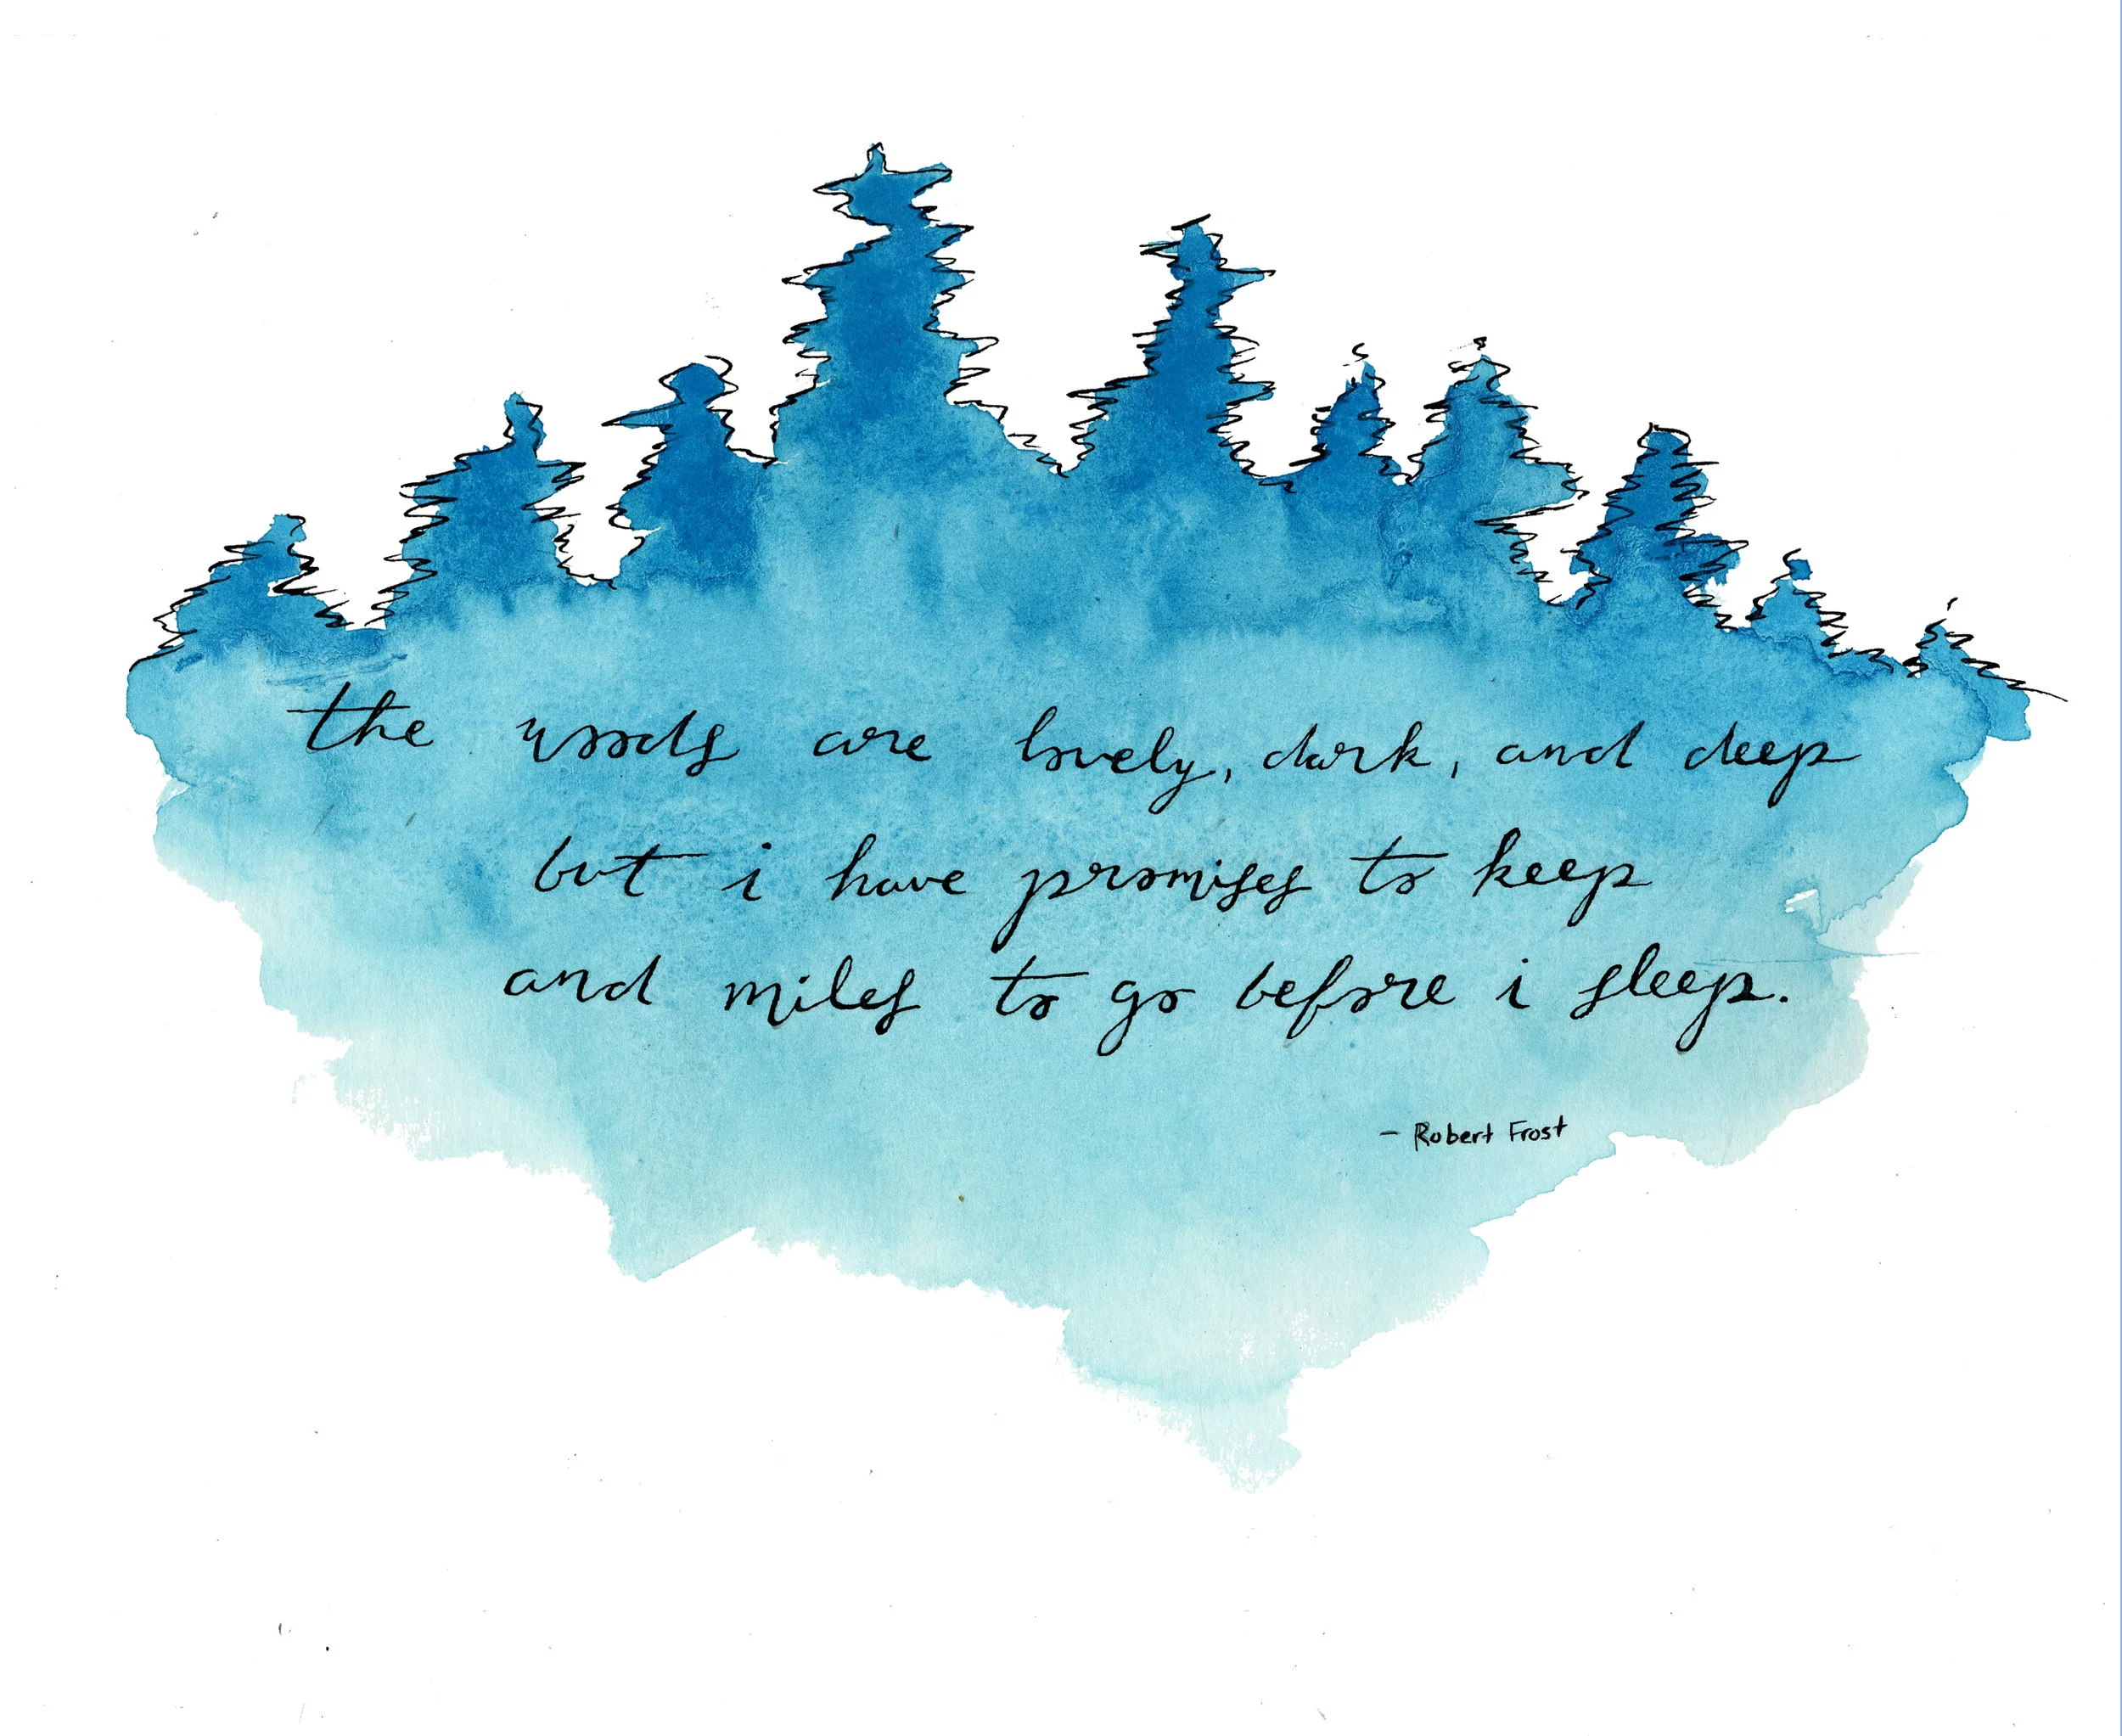 the woods are lovely, dark, and deep
but i have promises to keep
and miles to go before i sleep.
- Robert Frost